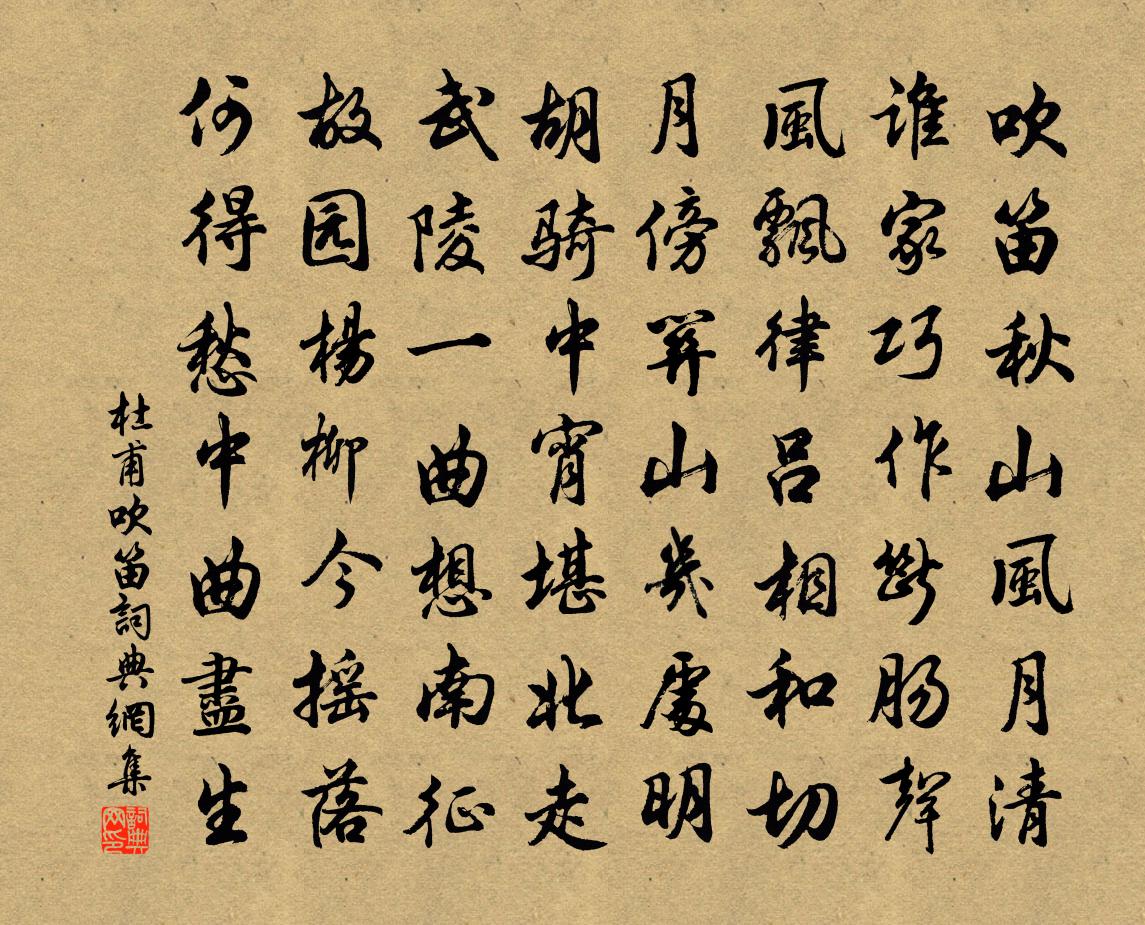 吹笛秋山風月清
誰家巧作斷腸聲
風飄律呂相和切
月傍關山幾處明
胡騎中宵堪北走
武陵一曲想南征
故园楊柳今摇落
何得愁中曲盡生
杜甫吹笛詞典網集
詞典網印